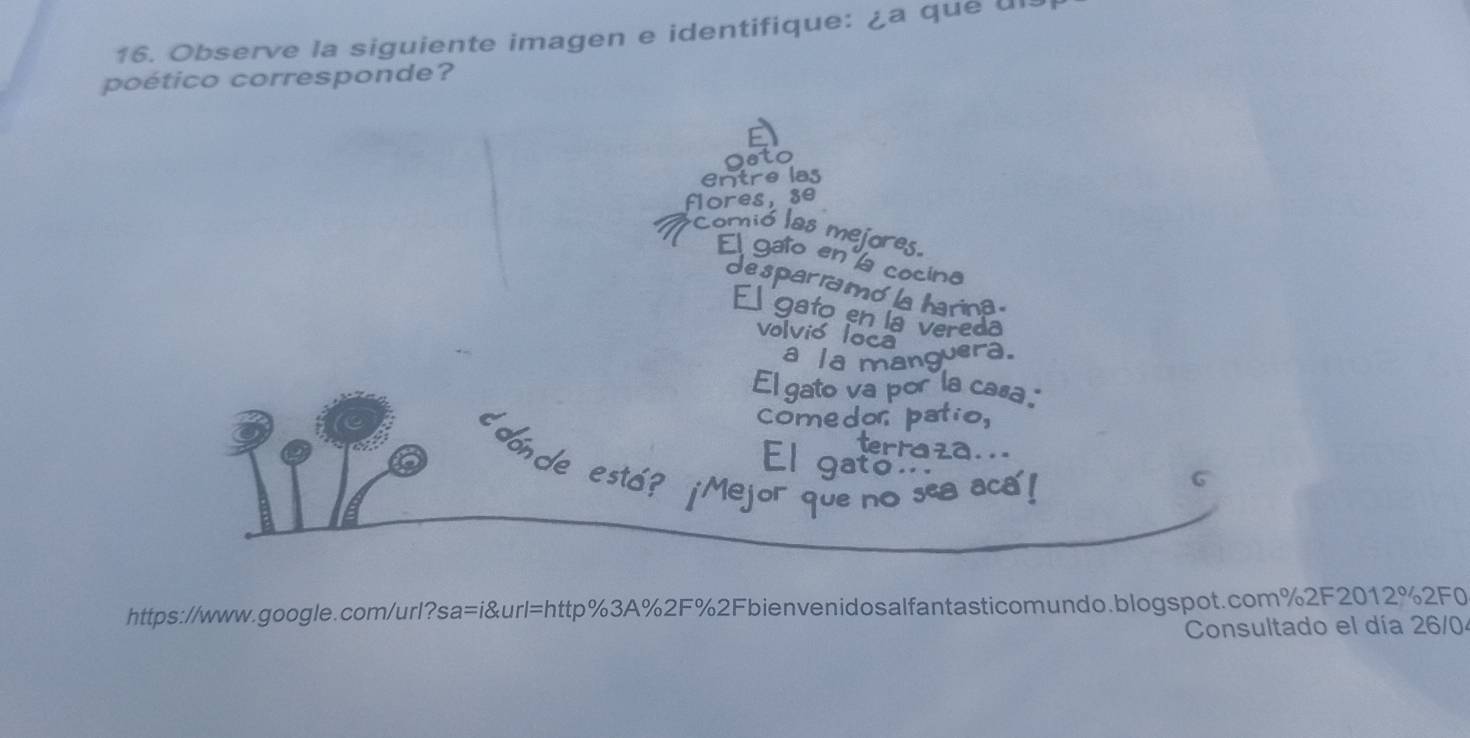 16. Observe la siguiente imagen e identifique: ¿a que
poético corresponde?
El
gato
entre las
flores, se
comió las mejores.
El gato en la cocina
desparramó la harina.
El gato en la vereda
volvió loca
a la manguera.
El gato va por la casa:
comedor, patio,
terraza...
El gato...
¿dónde está? ¡Mejor que no sea acá!
https://www.google.com/url?sa=i&url=http%3A%2F%2Fbienvenidosalfantasticomundo.blogspot.com%2F2012%2F0
Consultado el día 26/0